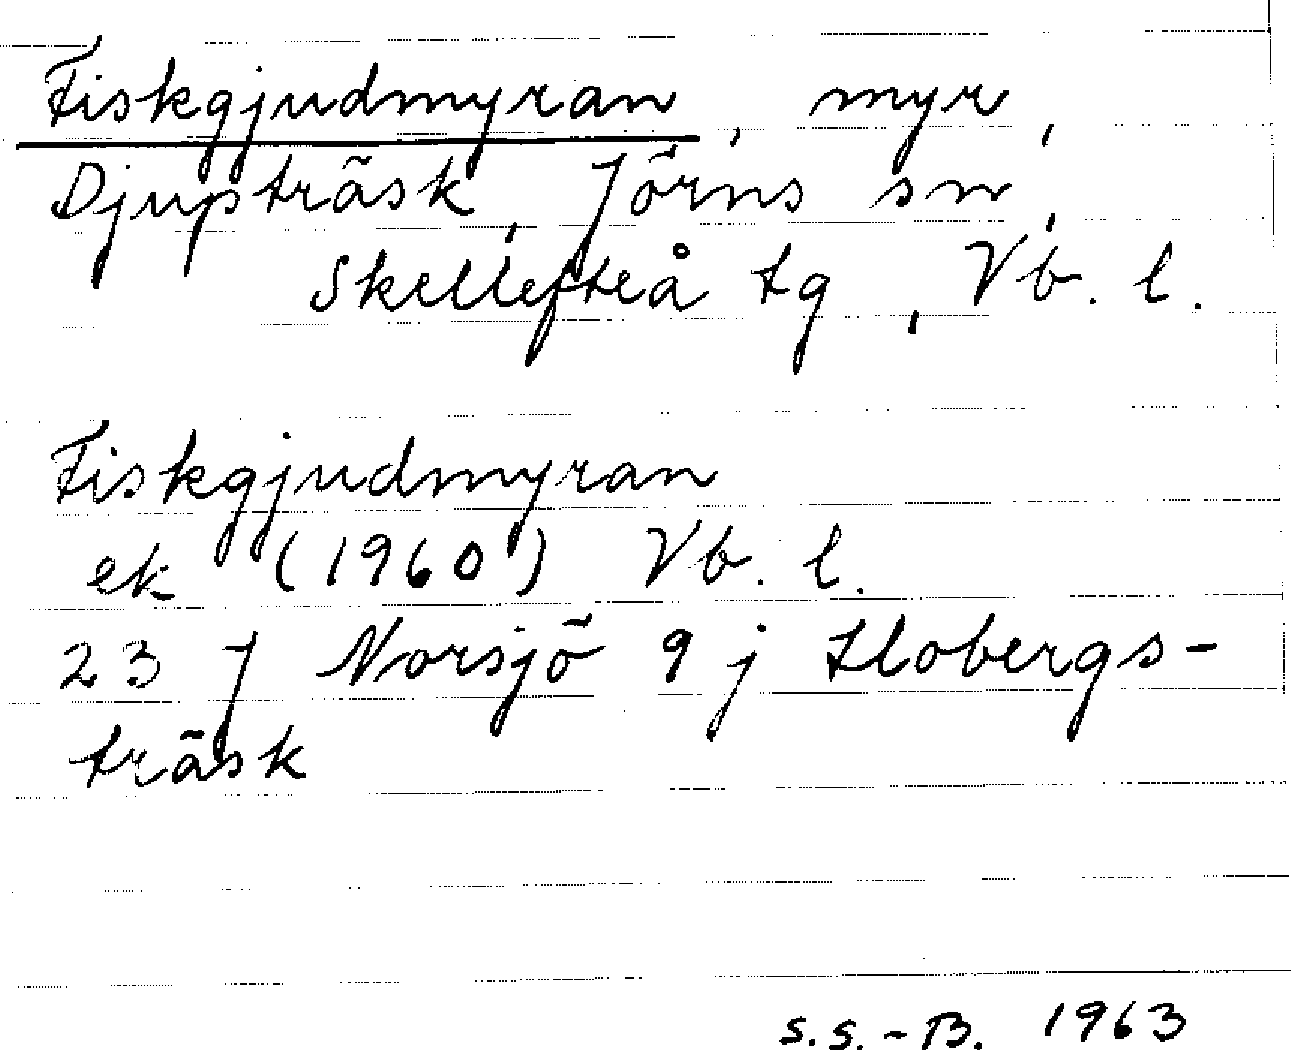 Fiskgjudmyran, myr,
Djupträsk, Jörns sn,
Skellefteå tg, Vb. l.
Fiskgjudmyran
ek (1960) Vb. l.
23 J Norsjö 9 j Flobergs-
träsk
S.S.-B. 1963